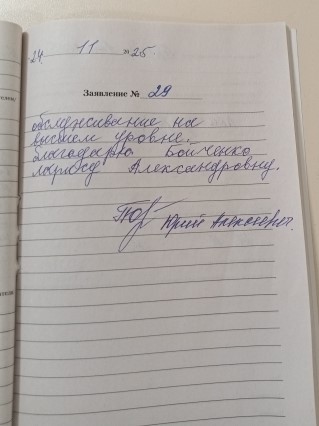 24 11 2025.
Заявление № 29
обслуживание на
высшем уровне.
благодарю Бойченко
Александровну.
Юрий